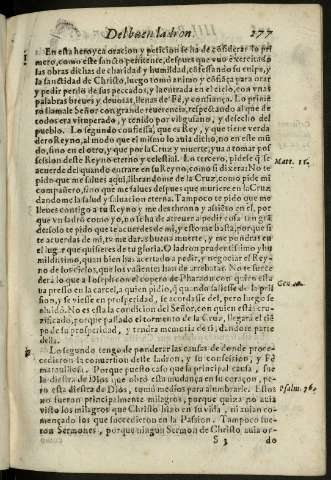 Del buen ladron. 277
En esta heroyca oracion y peticion se ha de cõsiderar lo pri
mero, como este sancto penitente, despues que vuo exercitado
las obras dichas de charidad y humildad, cõfessando su culpa, y
la sanctidad de Christo, luego tomò animo y cõfiãça para orar
y pedir perdõ de sus peccados, y la entrada en el cielo, con vnas
palabras breues y deuotas, llenas de Fè, y confiança. Lo prime
ro llamale Señor con grande reuerencia, respectando al que de
todos era vituperado, y tenido por vil gusano, y desecho del
pueblo. Lo segundo confiessa, que es Rey, y que tiene verda
dero Reyno, al modo que el mismo lo auia dicho, no en este mũ
do, sino en el otro, y que por la Cruz y muerte, yua a tomar pos
session deste Reyno eterno y celestial. Lo tercero, pidele q̃ se
acuerde del quando entrare en su Reyno, como si dixera: No te Matt. 15.
pido que me salues aqui, librandome de la Cruz, como pide mi
compañero, sino que me salues despues que muriere en la Cruz
dandome la salud y saluacion eterna. Tampoco te pido que me
lleues contigo a tu Reyno y me des throno y assiẽto en el, por
que vn ladrõ como yo, no se ha de atreuer a pedir cosa tan grã
de: solo te pido que te acuerdes de mi, y esto me basta, porque si
te acuerdas de mi, tu me daras buena muerte, y me pondras en
el lugar que quisieres de tu gloria. O ladron prudentissimo y hu
mildissimo, quan bien has acertado a pedir, y negociar el Rey-
no de los cielos, que los valientes han de arrebatar. No te succe
derà lo que a Ioseph con el copero de Pharaõ, con quien estu Gen. 40.
uo preso en la carcel, a quien pidio, q̃ quando saliesse de la pri
sion, y se viesse en prosperidad, se acordasse del, pero luego se
oluidò. No es esta la condicion del Señor, con quien estàs cru-
cificado, porque passado el tormento de la Cruz, llegarà el tiẽ
po de su prosperidad, y tendra memoria de ti, dandote parte
della.
Lo segundo tengo de ponderar las causas de donde proce-
cedieron la conuersion deste ladron, y su confession, y Fè
marauillosa. Porque puesto caso que la principal causa, fue
la diestra de Dios, que obrò esta mudança en su coraçon, pe-
ro esta diestra de Dios, tomò medios para alumbrarle. Estos Psalm. 76.
no fueron principalmente milagros, porque quiza no auia
visto los milagros que Christo hizo en su vida, ni auian co-
mençado los que succedieron en la Passion. Tampoco fue-
ron Sermones, porque ningun Sermon de Christo auia oy-
S 3 do